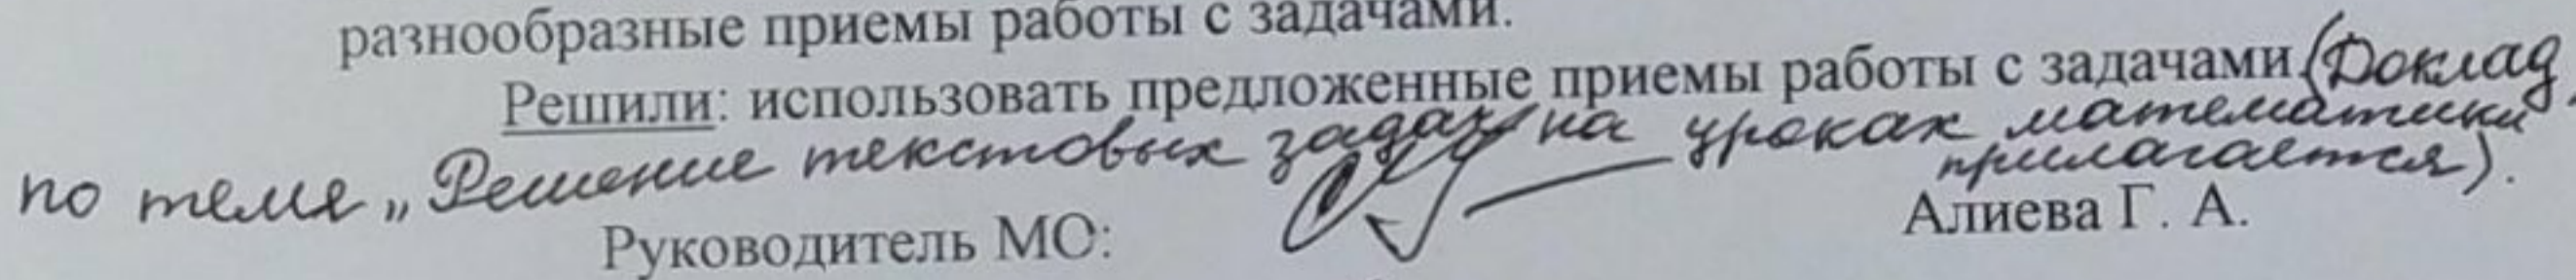 разнообразные приемы работы с задачами.
Решили: использовать предложенные приемы работы с задачами (Доклад
по теме „Решение текстовых задач на уроках математики
прилагается).
Руководитель МО: Алиева Г. А.